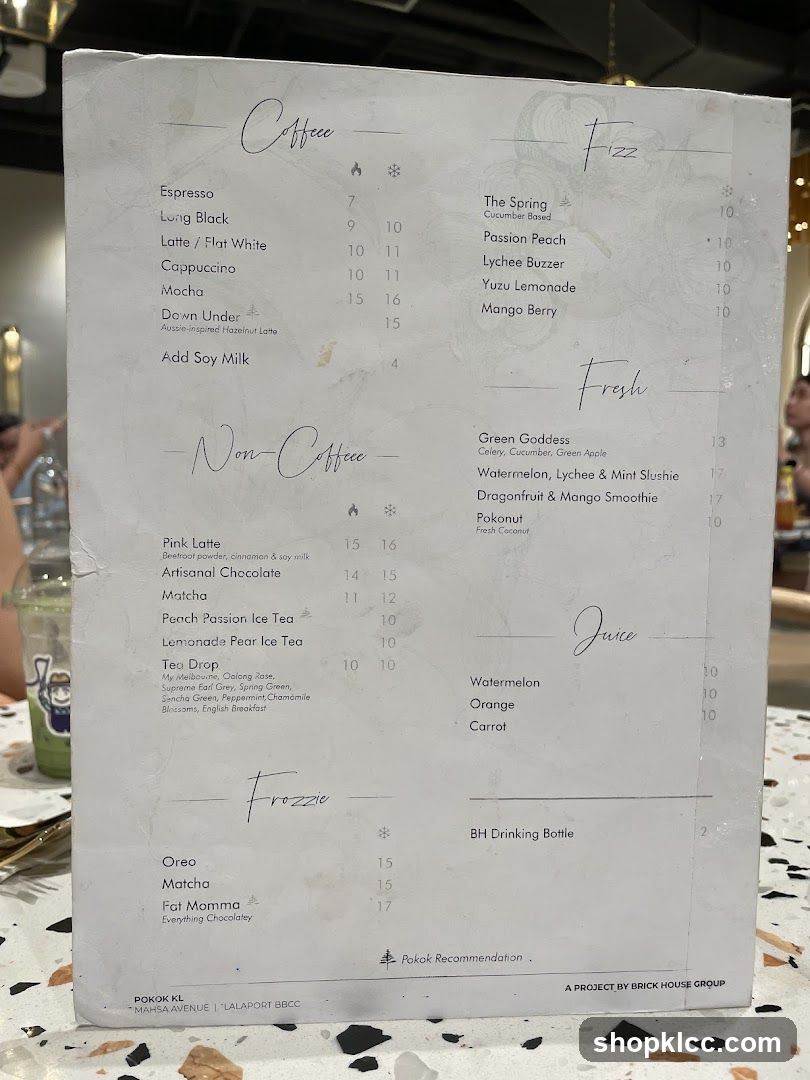 Coffeee
Espresso 7
Long Black 9 10
Latte / Flat White 10 11
Cappuccino 10 11
Mocha 15 16
Down Under 15
Aussie-inspired Hazelnut Latte
Add Soy Milk 4
Non-Coffeee
Pink Latte 15 16
Beetroot powder, cinnamon & soy milk
Artisanal Chocolate 14 15
Matcha 11 12
Peach Passion Ice Tea 10
Lemonade Pear Ice Tea 10
Tea Drop 10 10
My Melbourne, Oolong Rose,
Supreme Earl Grey, Spring Green,
Sencha Green, Peppermint, Chamomile
Blossoms, English Breakfast
Frozzie
Oreo 15
Matcha 15
Fat Momma 17
Everything Chocolatey
Fizz
The Spring 10
Cucumber Based
Passion Peach 10
Lychee Buzzer 10
Yuzu Lemonade 10
Mango Berry 10
Fresh
Green Goddess 13
Celery, Cucumber, Green Apple
Watermelon, Lychee & Mint Slushie 17
Dragonfruit & Mango Smoothie 17
Pokonut 10
Fresh Coconut
Juice
Watermelon 10
Orange 10
Carrot 10
BH Drinking Bottle 2
Pokok Recommendation
POKOK KL
MAHSA AVENUE | LALAPORT BBCC
A PROJECT BY BRICK HOUSE GROUP
shopklcc.com